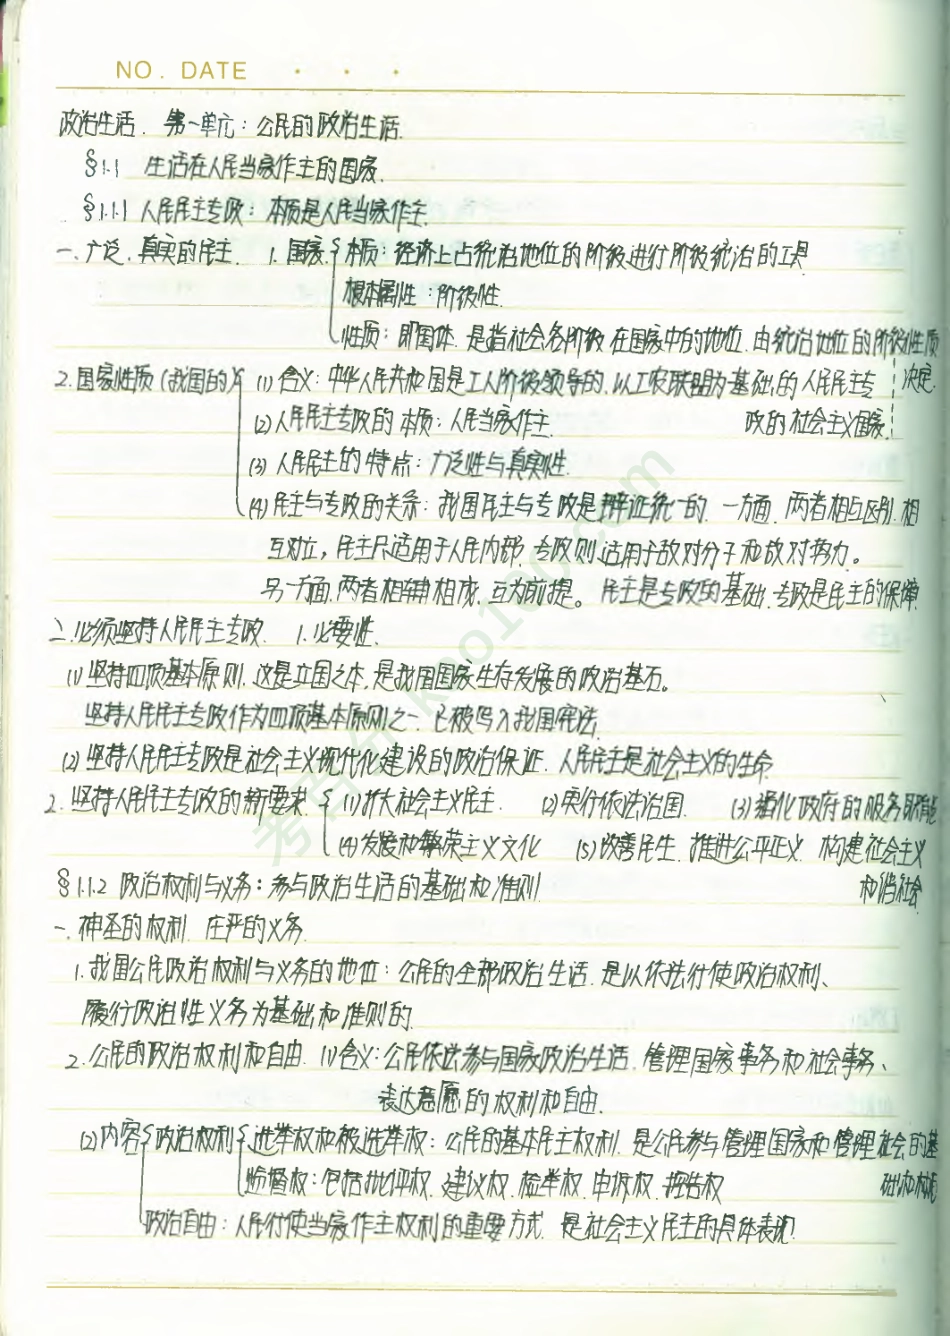 NO. DATE
政治生活. 第一单元：公民的政治生活.
§1.1 生活在人民当家作主的国家.
§1.1.1 人民民主专政：本质是人民当家作主.
一、广泛、真实的民主. 1. 国家 { 本质：经济上占统治地位的阶级进行阶级统治的工具
根本属性：阶级性.
性质：即国体. 是指社会各阶级在国家中的地位. 由统治地位的阶级性质
2. 国家性质（我国的） { (1) 含义：中华人民共和国是工人阶级领导的、以工农联盟为基础的人民民主专 决定.
(2) 人民民主专政的本质：人民当家作主. 政的社会主义国家.
(3) 人民民主的特点：广泛性与真实性.
(4) 民主与专政的关系：我国民主与专政是辩证统一的. 一方面. 两者相互区别. 相
互对立，民主只适用于人民内部. 专政则适用于敌对分子和敌对势力。
另一方面. 两者相辅相成、互为前提。民主是专政的基础. 专政是民主的保障.
二、必须坚持人民民主专政. 1. 必要性.
(1) 坚持四项基本原则. 这是立国之本. 是我国国家生存发展的政治基石。
坚持人民民主专政作为四项基本原则之一. 已被写入我国宪法.
(2) 坚持人民民主专政是社会主义现代化建设的政治保证. 人民民主是社会主义的生命.
2. 坚持人民民主专政的新要求 { (1) 扩大社会主义民主. (2) 实行依法治国. (3) 强化政府的服务职能
(4) 发展和繁荣主义文化 (5) 改善民生. 推进公平正义. 构建社会主义
§1.1.2 政治权利与义务：参与政治生活的基础和准则 和谐社会.
一、神圣的权利 庄严的义务.
1. 我国公民政治权利与义务的地位：公民的全部政治生活. 是以依法行使政治权利、
履行政治性义务为基础和准则的.
2. 公民的政治权利和自由. (1) 含义：公民依法参与国家政治生活. 管理国家事务和社会事务、
表达意愿的权利和自由.
(2) 内容 { 政治权利 { 选举权和被选举权：公民的基本民主权利. 是公民参与管理国家和管理社会的基
监督权：包括批评权. 建议权. 检举权. 申诉权. 控告权 础和标志
政治自由：人民行使当家作主权利的重要方式. 是社会主义民主的具体表现.
考百分 kao100.com